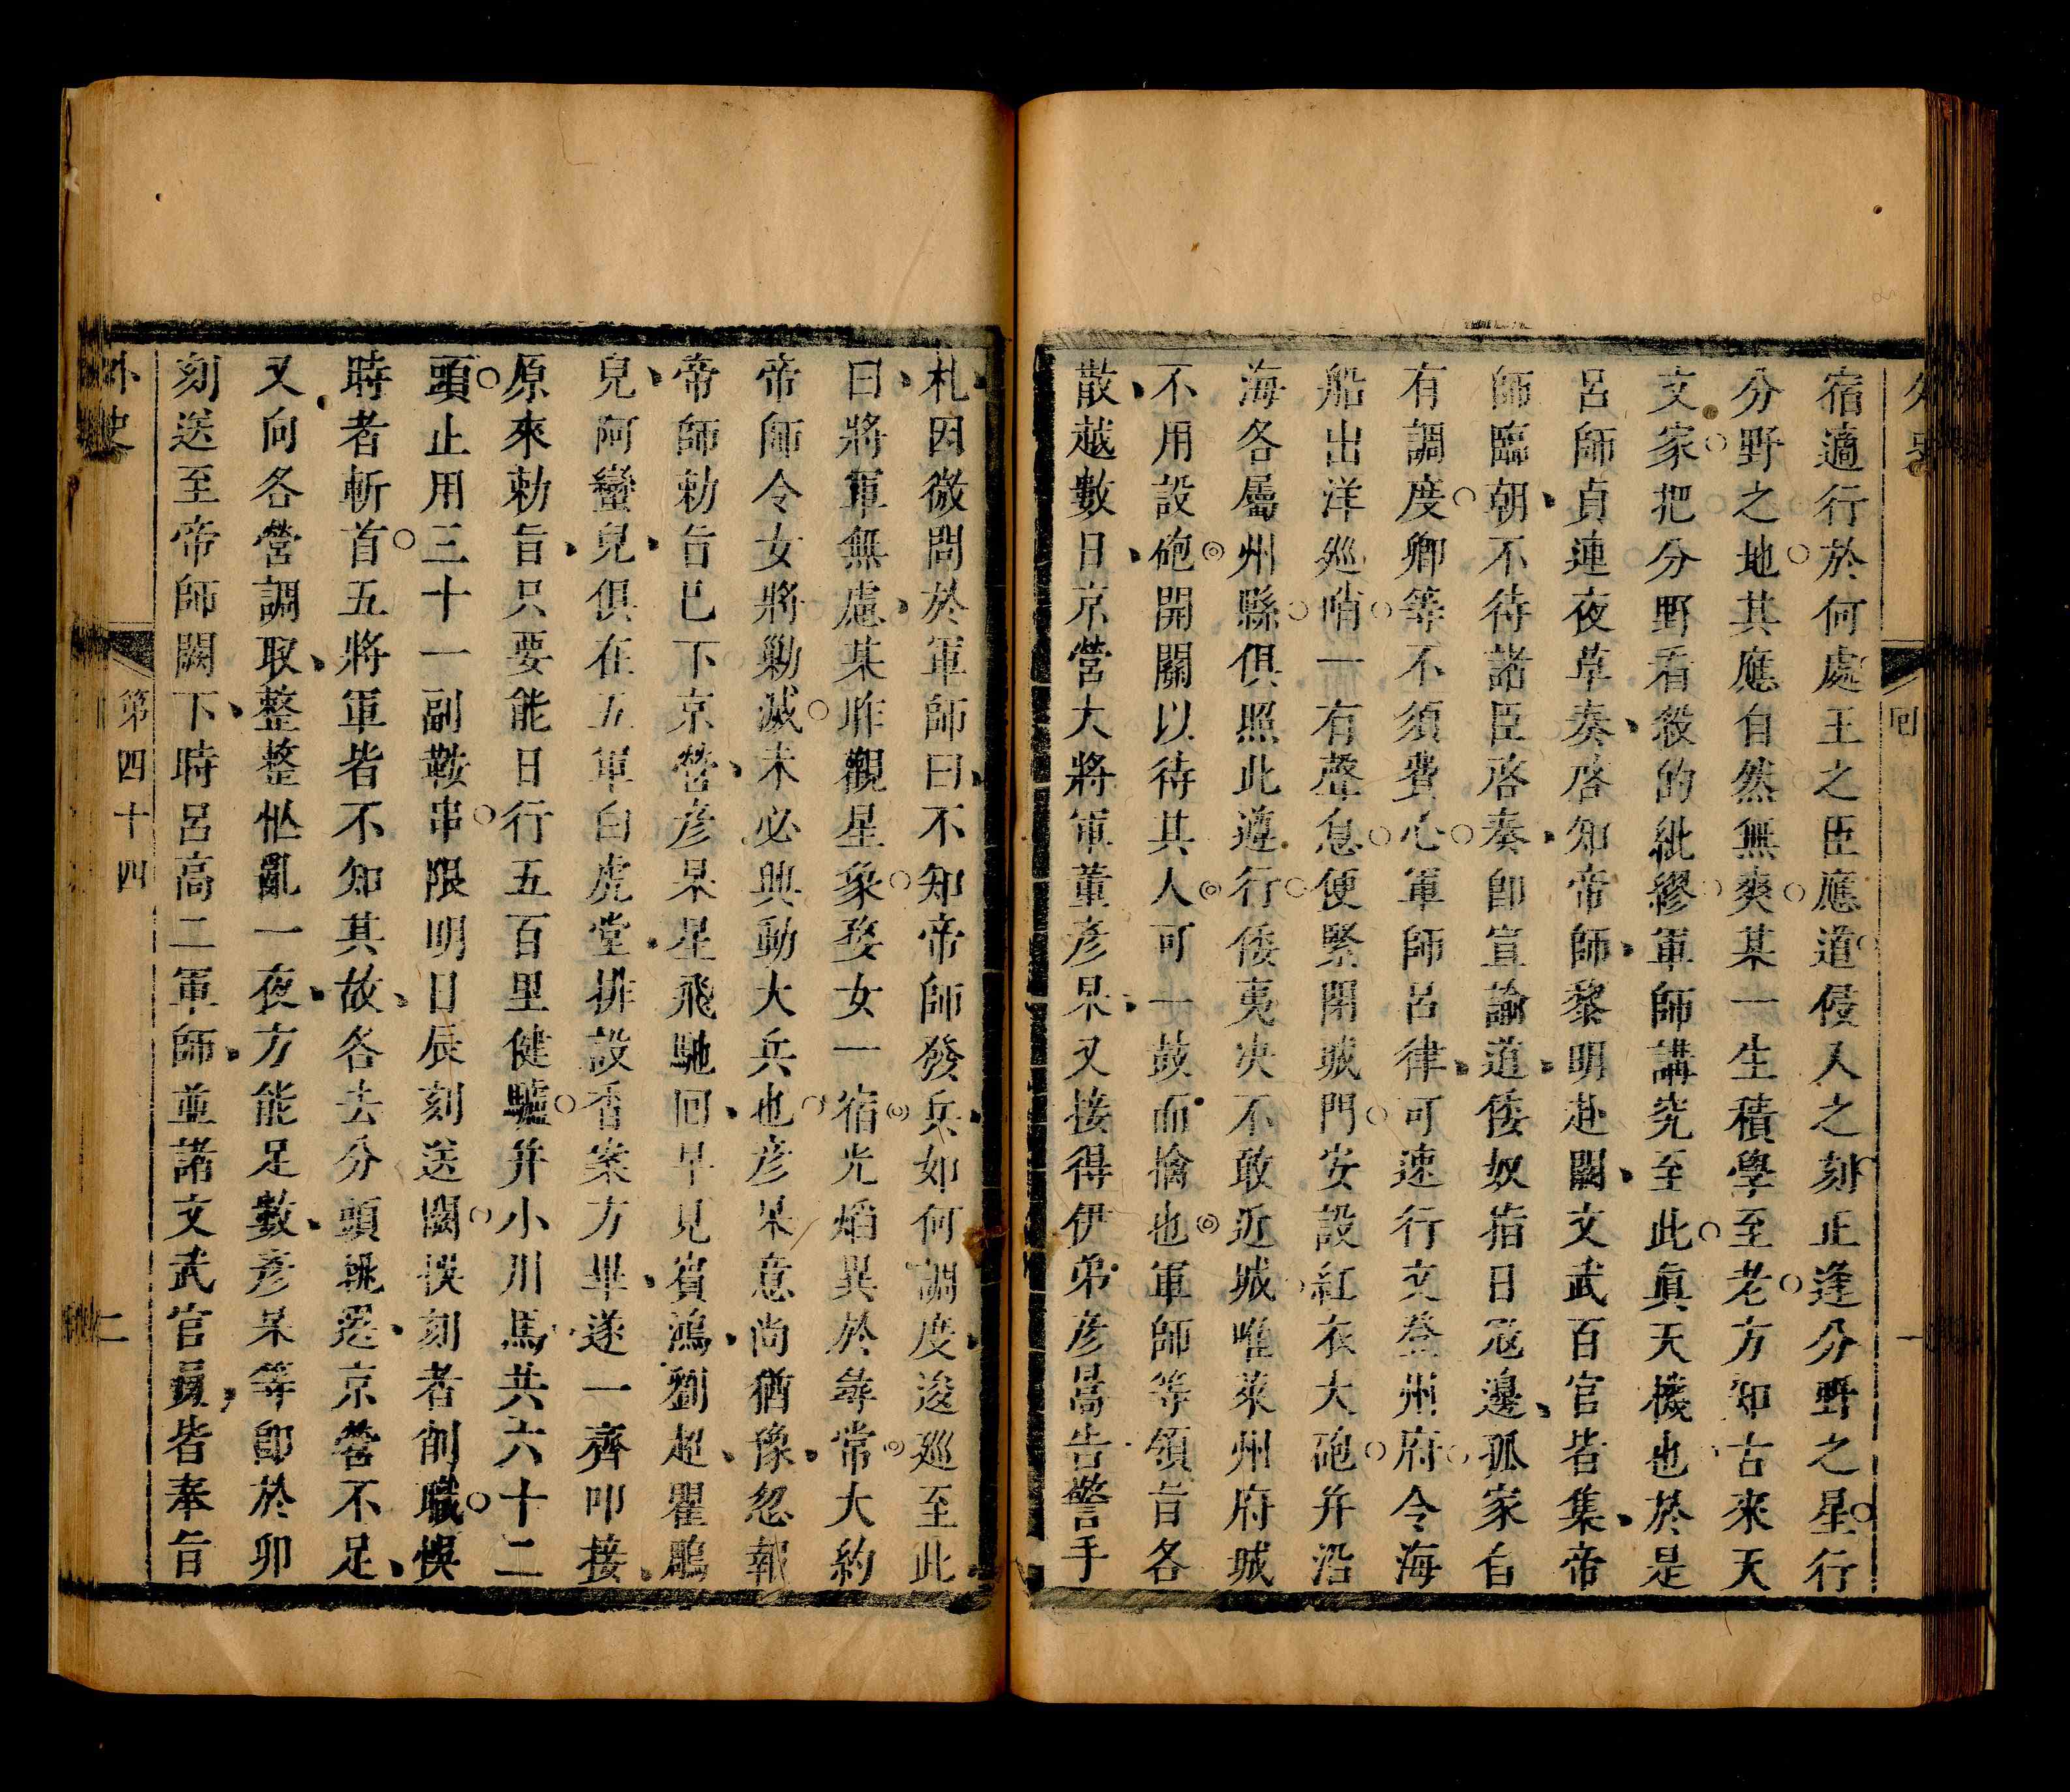 宿適行於何處王之臣應道侵入之刻正逢分野之星行
分野之地其應自然無爽某一生積學至老方知古來天
文家把分野看殺的紕繆軍師講究至此眞天機也於是
呂師貞連夜草奏啓知帝師黎明赴闕文武百官皆集帝
師臨朝不待諸臣啓奏卽宣諭道倭奴指日寇邊孤家自
有調度卿等不須費心軍師呂律可速行文登州府令海
船出洋廵哨一有聲息便緊閉城門安設紅衣大砲并沿
海各屬州縣俱照此遵行倭夷決不敢近城唯萊州府城
不用設砲開關以待其人可一鼓而擒也軍師等領旨各
散越數日京營大將軍董彥杲又接得伊弟彥暠告警手
札因微問於軍師曰不知帝師發兵如何調度逡廵至此
曰將軍無慮某昨觀星象婺女一宿光熖異於尋常大約
帝師令女將勦滅未必興動大兵也彥杲意尚猶豫忽報
帝師勅旨已下京營彥杲星飛馳回早見賓鴻劉超瞿鵰
兒阿蠻兒俱在五軍白虎堂排設香案方畢遂一齊叩接
原來勅旨只要能日行五百里健驢并小川馬共六十二
頭止用三十一副鞍串限明日辰刻送闕悞刻者削職悞
時者斬首五將軍皆不知其故各去分頭挑選京營不足
又向各營調取整整忙亂一夜方能足數彥杲等卽於卯
刻送至帝師闕下時呂高二軍師並諸文武官員皆奉旨
外史
第四十四
二